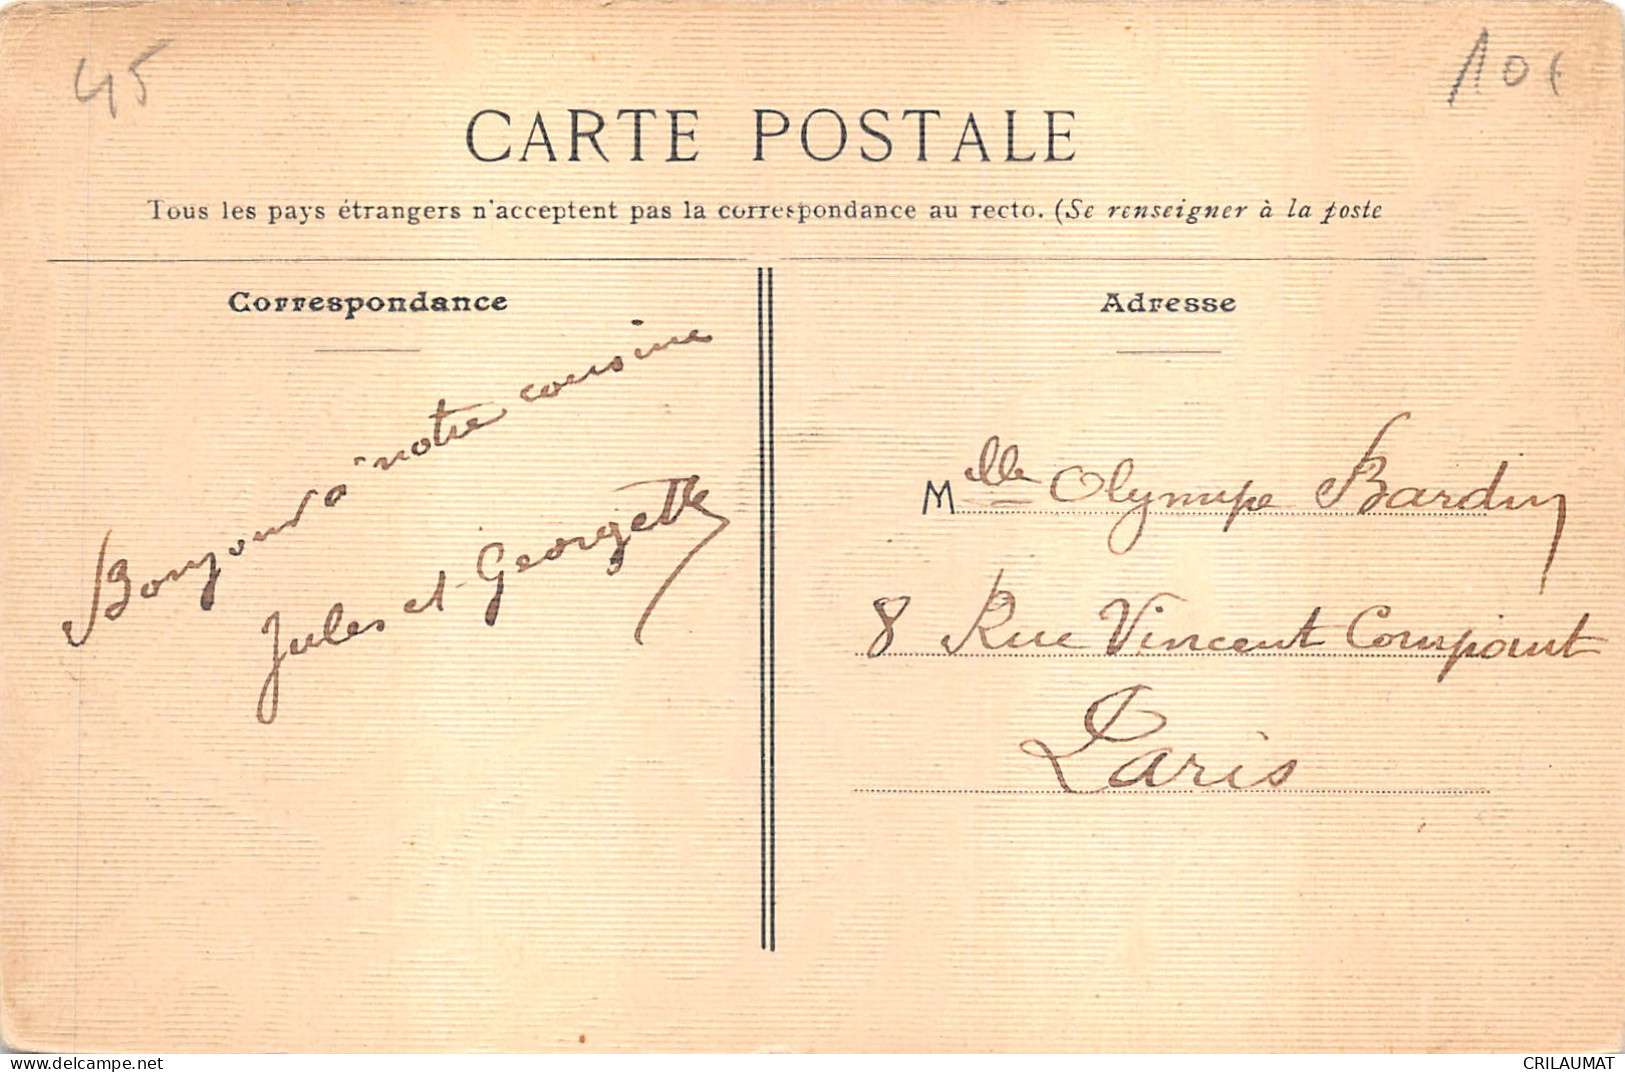 45
10€
CARTE POSTALE
Tous les pays étrangers n'acceptent pas la correspondance au recto. (Se renseigner à la poste
Correspondance
Bonjour à notre cousine
Jules et Georgette
Adresse
Mlle Olympe Bardin
8 Rue Vincent Compoint
Paris
delcampe.net
CRILAUMAT